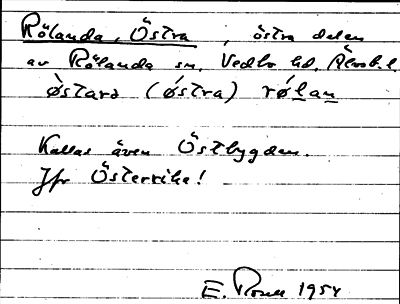 Rölanda, Östra, östra delen
av Rölanda sn, Vedbo hd, Älvsb. l.
ò̀starə (ǿstra) rǿlan
Kallas även Östbygden.
Jfr Österrike!
E. 1954